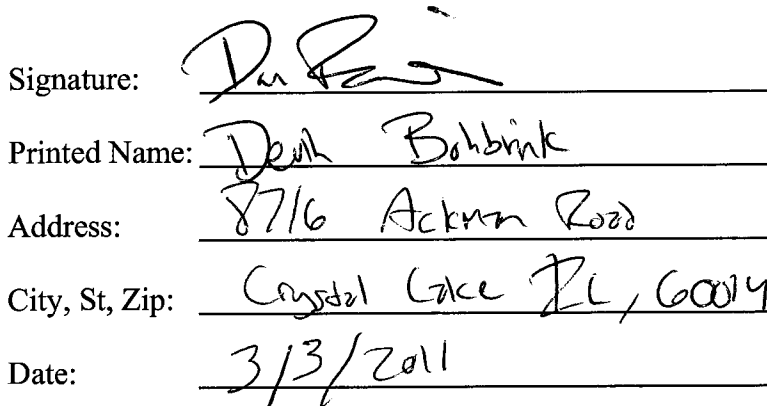 Signature:
Printed Name: Bohbrink
Address: 8716 Ackman Road
City, St, Zip: Crystal Lake IL, 60014
Date: 3/3/2011